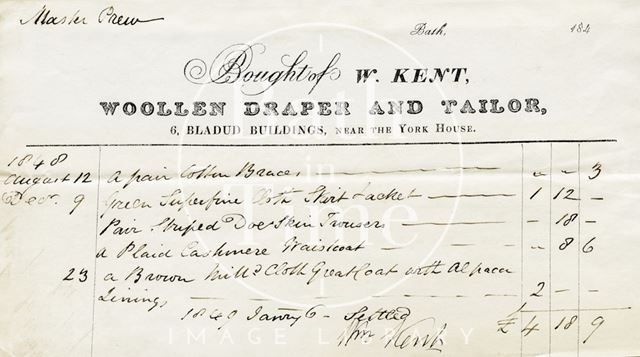 Master Prew
Bath, 184
Bought of W. KENT,
WOOLLEN DRAPER AND TAILOR,
6, BLADUD BUILDINGS, NEAR THE YORK HOUSE.
1848
August 12 a pair Cotton Braces — " " 3
Decr. 9 Green Superfine Cloth Skirt Jacket — 1 12 –
Pair Striped Doe Skin Trousers — – 18 –
a Plaid Cashmere Waistcoat — " 8 6
23 a Brown Mill'd Cloth Great Coat with Alpacca
Linings — 2 – –
1849 Janry 6 – Settled £ 4 18 9
Wm Kent
Bath in Time
IMAGE LIBRARY